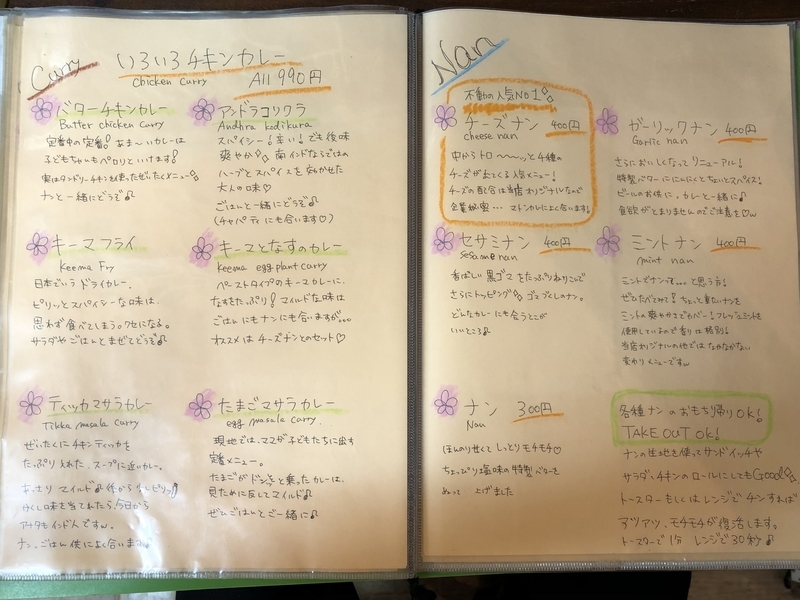 Curry
いろいろチキンカレー
Chicken Curry
All 990円
バターチキンカレー
Butter chicken curry
定番中の定番。あま〜いカレーは
子どもちゃいもペロリといけます!
実はタンドリーチキンを使ったぜいたくメニュー
ナンと一緒にどうぞ♪
アンドラコリクラ
Andhra kodikura
スパイシー!辛い!でも後味
爽やか 南インドならではの
ハーブとスパイスをきかせた
大人の味♡
ごはんと一緒にどうぞ♪
(チャパティにも合います♡)
キーマフライ
Keema Fry
日本でいうドライカレー。
ピリッとスパイシーな味は、
思わず食べてしまう。クセになる。
サラダやごはんとまぜてどうぞ♪
キーマとなすのカレー
Keema egg plant curry
ペーストタイプのキーマカレーに、
なすをたっぷり!マイルドな味は
ごはんにもナンにも合いますが…
オススメはチーズナンとのセット♡
ティッカマサラカレー
Tikka masala curry
ぜいたくにチキンティッカを
たっぷり入れた、スープに近いカレー。
あっさりマイルド♪後から少しピリッ!
かくし味を当てれたら、今日から
アナタもインド人ですw。
ナン、ごはん供によく合います
たまごマサラカレー
egg masala curry
現地では、ママが子どもたちに出す
定番メニュー。
たまごがドンッと乗ったカレーは、
見ために反してマイルド♪
ぜひごはんとご一緒に♪
Nan
不動の人気NO1
チーズナン 400円
cheese nan
中からトロ〜〜〜ッと4種の
チーズが出てくる人気メニュー!
チーズの配合は当店オリジナルなので
企業秘密… マトンカレーによく合います。
ガーリックナン 400円
Garlic nan
さらにおいしくなってリニューアル!
特製バターににんにくとちょいとスパイス!
ビールのお供に。カレーと一緒に♪
食欲がとまりませんのでご注意を♡w
セサミナン 400円
Sesame nan
香ばしい黒ゴマをたっぷりねりこんで
さらにトッピング ゴマづくしのナン。
どんなカレーにも合うとこが
いいところ♪
ミントナン 400円
mint nan
ミントでナンって…と思う方!
ぜひたべてみて!ちょっと重たいナンを
ミントの爽やかさでカバー!フレッシュミントを
使用しているので香りは格別!
当店オリジナルの他ではなかなかない
変わりメニューですw
ナン 300円
Nan
ほんのり甘くてしっとりモチモチ♡
ちょっぴり塩味の特製バターを
ぬって 上げました
各種ナンのおもち帰りOK!
TAKE OUT OK!
ナンの生地を使ってサンドイッチや
サラダ、チキンのロールにしてもGood
トースターもしくはレンジでチンすれば
アツアツ、モチモチが復活します。
トースターで1分 レンジで30秒♪